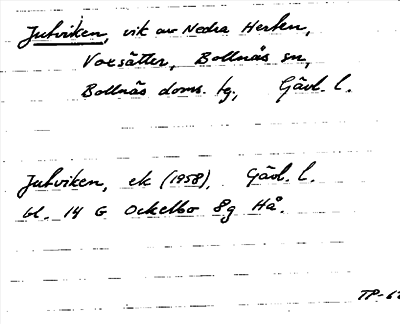 Jutviken, vik av Nedra Herten,
Voxsätter, Bollnäs sn,
Bollnäs doms. tg, Gävl. l.
Jutviken, ek (1958), Gävl. l.
bl. 14 G Ockelbo 8g Hå.